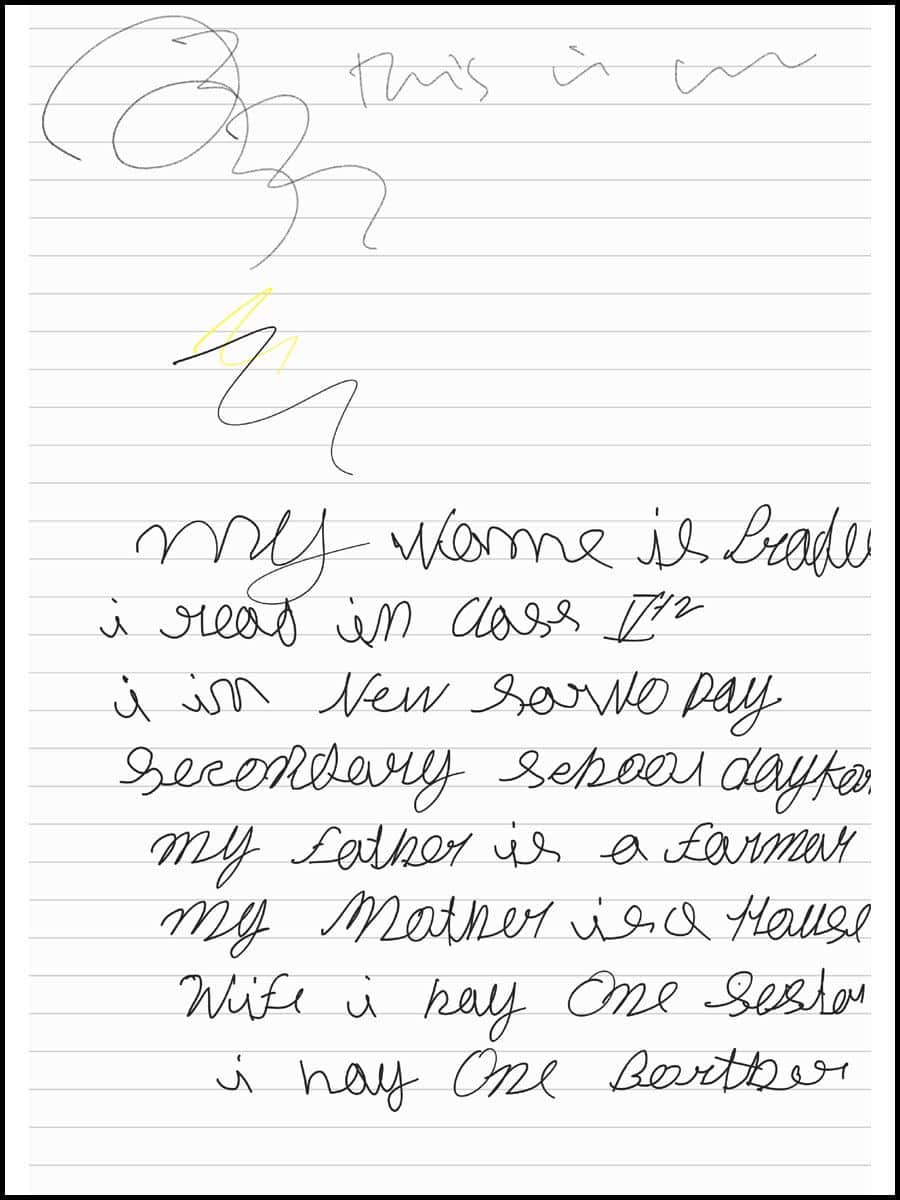 this is
my Name is Prade
i read in class Vth
i in New Sarwo Day
Secondary School day
my father is a farmar
my Mother is a House
Wife i hay One Sestar
i hay One Borther